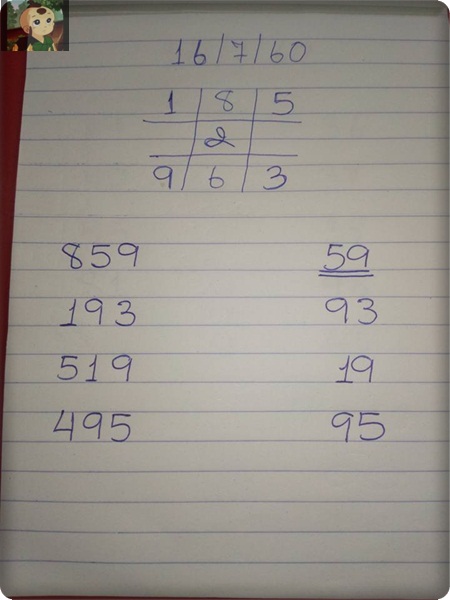 16/7/60
1 | 8 | 5
2
9 | 6 | 3
859 59
193 93
519 19
495 95